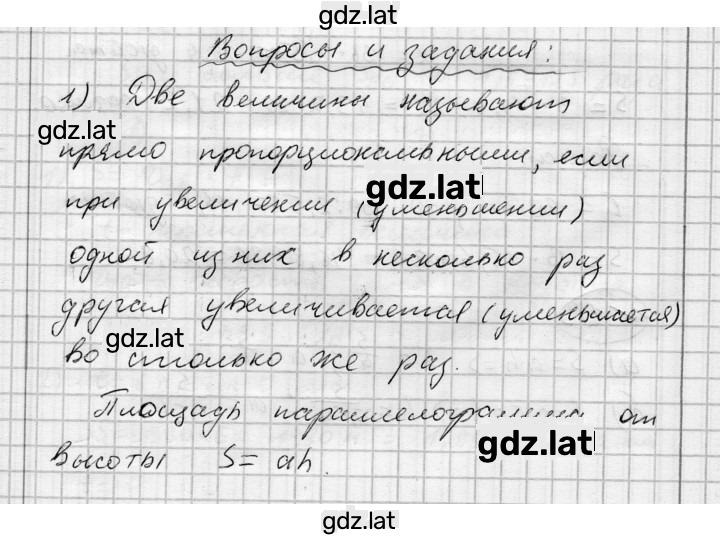 gdz.lat
Вопросы и задания:
1) Две величины называют
gdz.lat
прямо пропорциональными, если
gdz.lat
при увеличении (уменьшении)
одной из них в несколько раз
другая увеличивается (уменьшается)
gdz.lat
во столько же раз.
Площадь параллелограмма от
gdz.lat
высоты S = ah.
gdz.lat